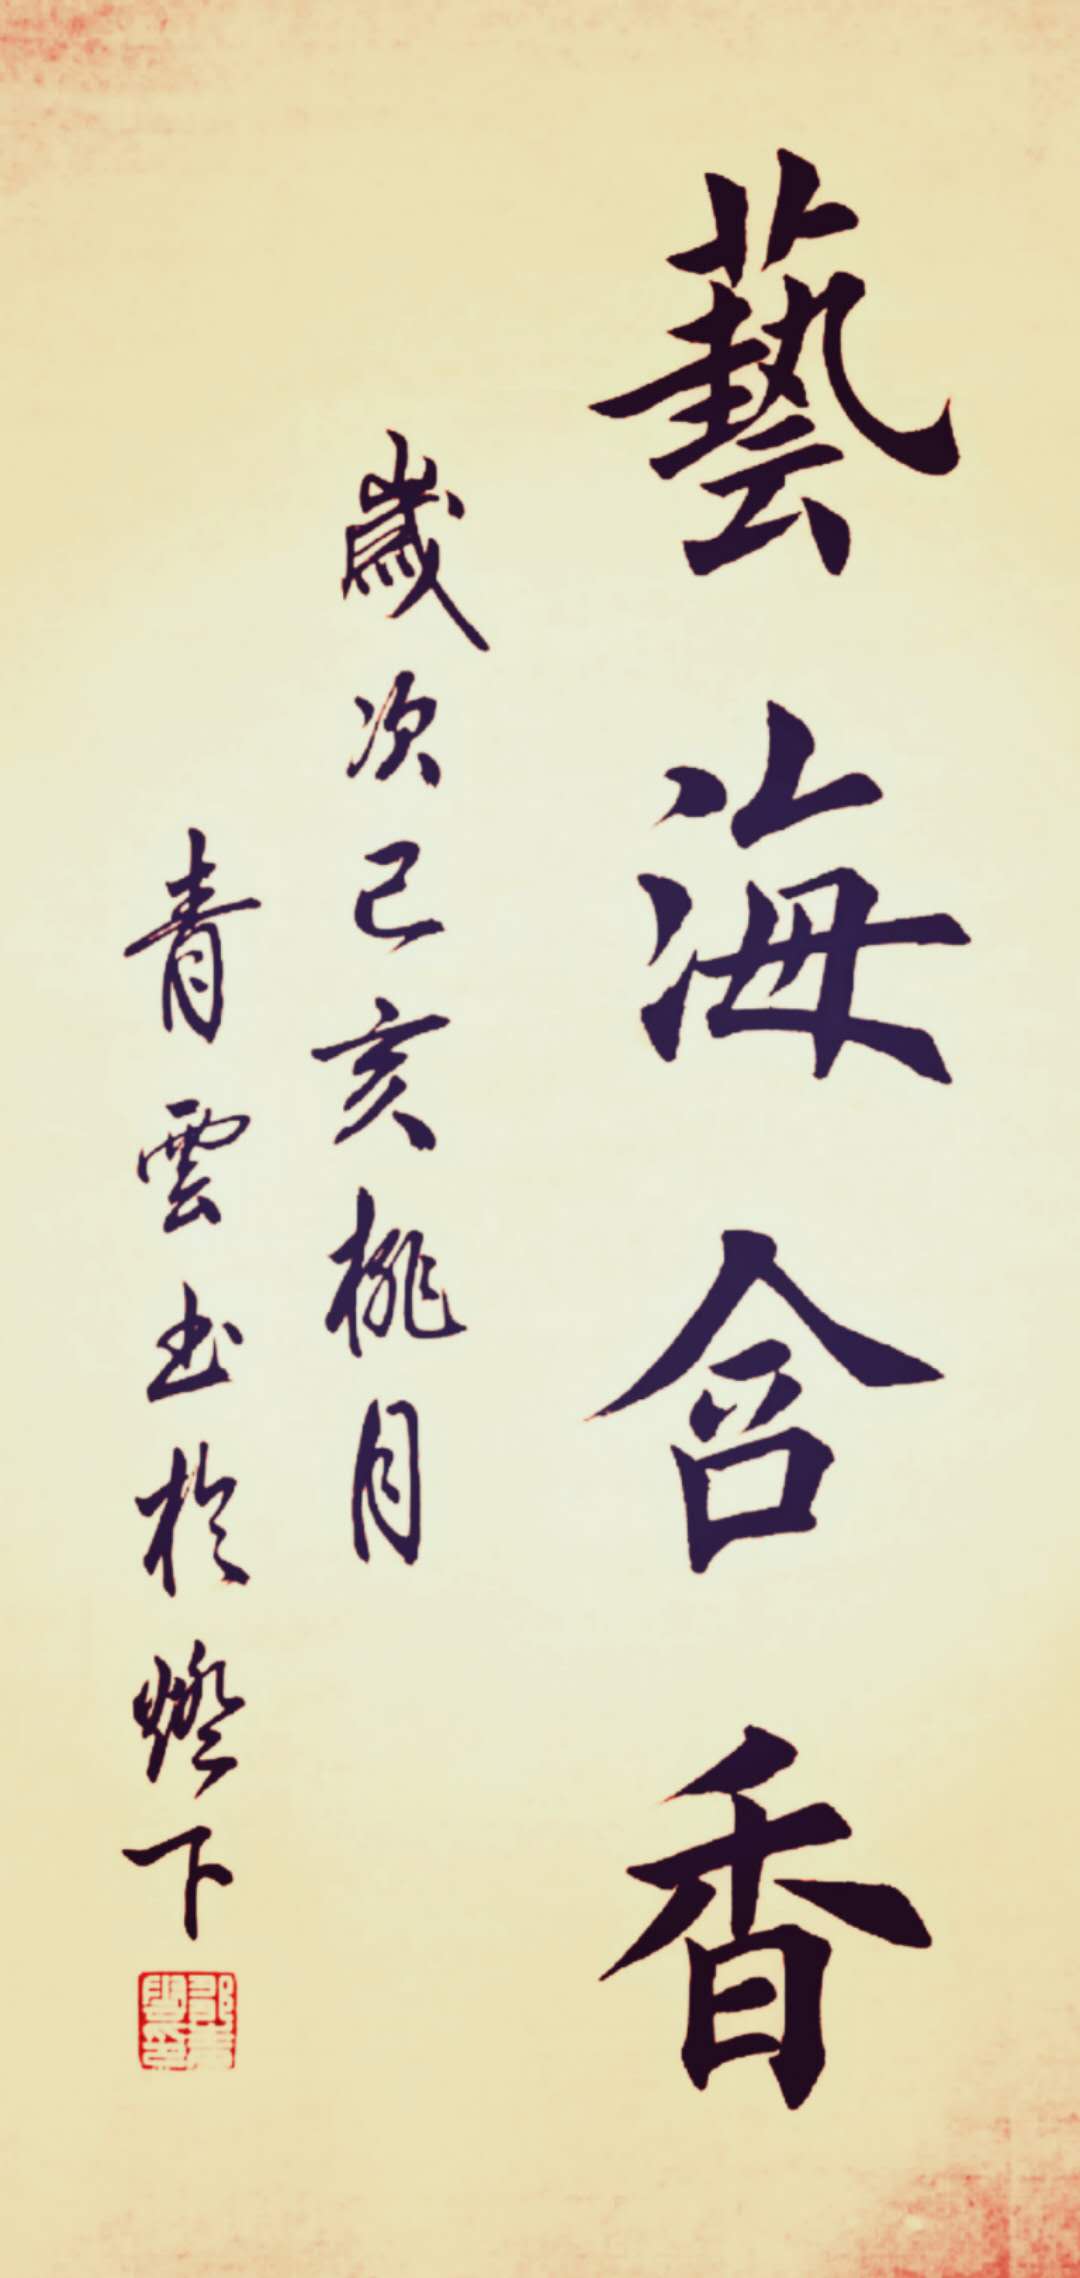 藝海含香
歲次己亥桃月
青雲书於燈下